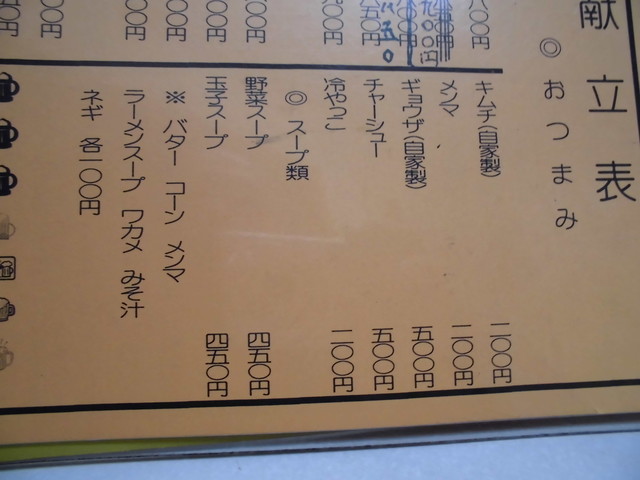 献立表
◎おつまみ
キムチ(自家製) 二〇〇円
メンマ 二〇〇円
ギョウザ(自家製) 五〇〇円
チャーシュー 五〇〇円
冷やっこ 二〇〇円
◎スープ類
野菜スープ 四五〇円
玉子スープ 四五〇円
※ バター コーン メンマ
ラーメンスープ ワカメ みそ汁
ネギ 各一〇〇円